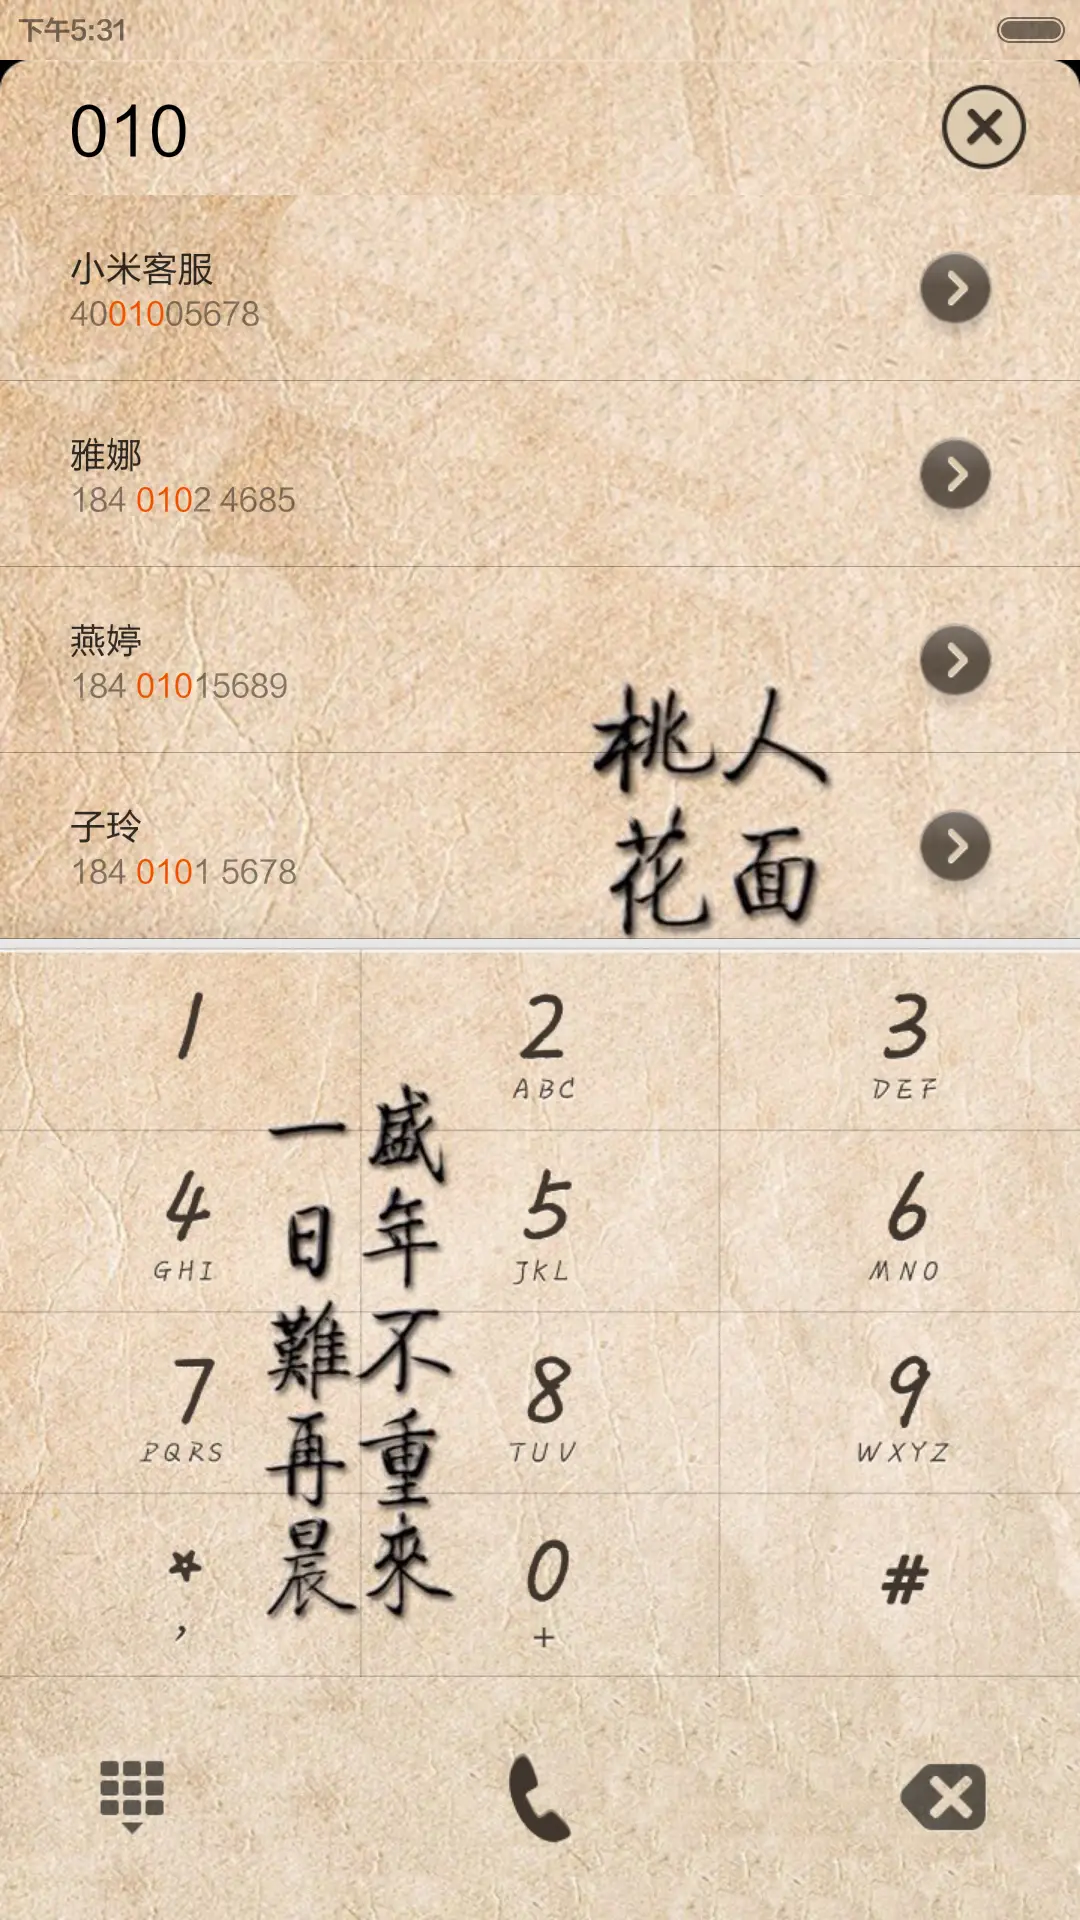 下午5:31
010
小米客服
4001005678
雅娜
184 0102 4685
燕婷
184 01015689
子玲
184 0101 5678
人面
桃花
1
2
ABC
3
DEF
4
GHI
5
JKL
6
MNO
7
PQRS
8
TUV
9
WXYZ
*
,
0
+
#
盛年不重來
一日難再晨